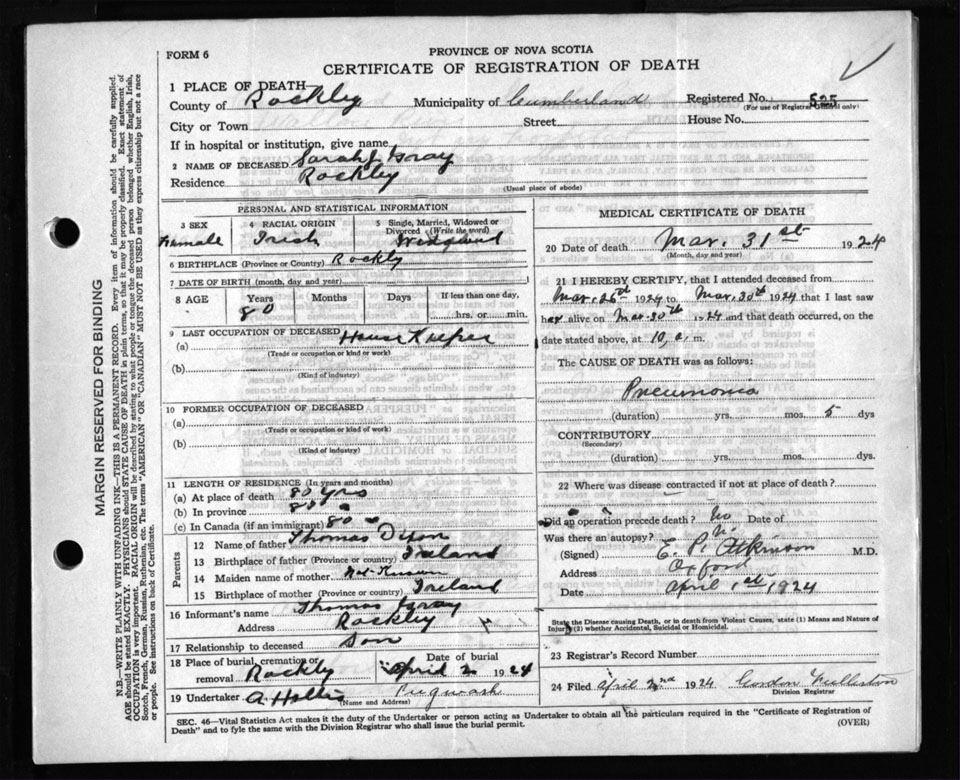 FORM 6
PROVINCE OF NOVA SCOTIA
CERTIFICATE OF REGISTRATION OF DEATH
1 PLACE OF DEATH
County of Rockley Municipality of Cumberland Registered No. 525
(For use of Registrar General only)
City or Town Street House No.
If in hospital or institution, give name
2 NAME OF DECEASED Sarah J Gray
Residence Rockley
(Usual place of abode)
PERSONAL AND STATISTICAL INFORMATION
3 SEX 4 RACIAL ORIGIN 5 Single, Married, Widowed or Divorced (Write the word)
Irish
6 BIRTHPLACE (Province or Country) Rockly
7 DATE OF BIRTH (month, day and year)
8 AGE Years Months Days If less than one day,
80 hrs. or min.
9 LAST OCCUPATION OF DECEASED
(a) House Keeper
(Trade or occupation or kind or work)
(b)
(Kind of industry)
10 FORMER OCCUPATION OF DECEASED
(a)
(Trade or occupation or kind of work)
(b)
(Kind of industry)
11 LENGTH OF RESIDENCE (In years and months)
(a) At place of death 80 yrs
(b) In province 80 "
(c) In Canada (if an immigrant) 80 "
Parents
12 Name of father Thomas Dixon
13 Birthplace of father (Province or country) Ireland
14 Maiden name of mother Not Known
15 Birthplace of mother (Province or country) Ireland
16 Informant's name Thomas Gray
Address Rockley
17 Relationship to deceased Son
18 Place of burial, cremation or removal Rockley Date of burial April 2 1924
19 Undertaker A. Hollis Pugwash
(Name and Address)
MEDICAL CERTIFICATE OF DEATH
20 Date of death Mar. 31st 1924
(Month, day and year)
21 I HEREBY CERTIFY, that I attended deceased from
Mar. 26th 1924 to Mar. 30th 1924 that I last saw
her alive on Mar 30th 1924 and that death occurred, on
date stated above, at 10, a m.
The CAUSE OF DEATH was as follows:
Pneumonia
(duration) yrs. mos. 5 dys
CONTRIBUTORY
(Secondary)
(duration) yrs. mos. dys.
22 Where was disease contracted if not at place of death?
Did an operation precede death? No Date of
Was there an autopsy? No
(Signed) E. P. Atkinson M.D.
Address Oxford
Date April 1st 1924
State the Disease causing Death, or in death from Violent Causes, state (1) Means and Nature of
Injury (2) whether Accidental, Suicidal or Homicidal.
23 Registrar's Record Number
24 Filed April 2nd 1924 Gordon
Division Registrar
SEC. 46—Vital Statistics Act makes it the duty of the Undertaker or person acting as Undertaker to obtain all the particulars required in the "Certificate of Registration of
Death" and to fyle the same with the Division Registrar who shall issue the burial permit.
(OVER)
MARGIN RESERVED FOR BINDING
N.B.—WRITE PLAINLY WITH UNFADING INK—THIS IS A PERMANENT RECORD. Every item of information should be carefully supplied.
AGE should be stated EXACTLY. PHYSICIANS should STATE CAUSE OF DEATH in plain terms, so that it may be properly classified. Exact statement of
OCCUPATION is very important. RACIAL ORIGIN will be described by stating to what people or tongue the deceased person belonged whether English, Irish,
Scotch, French, German, Russian, Ruthenian, etc. The terms "AMERICAN" OR "CANADIAN" MUST NOT BE USED as they express citizenship but not a race
or people. See instructions on back of Certificate.